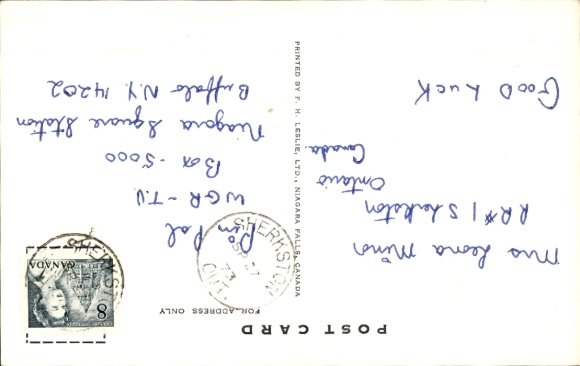 POST CARD
FOR ADDRESS ONLY
Mrs Leona Minor
RR #1 Sherkston
Ontario
Canada.
GOOD LUCK
PRINTED BY F. H. LESLIE, LTD., NIAGARA FALLS, CANADA
SHERKSTON
27
73
ONT.
8
CANADA
SHERKST
Pen Pal
WGR-T.V
Box-5000
Niagara Square Station
Buffalo N.Y. 14202